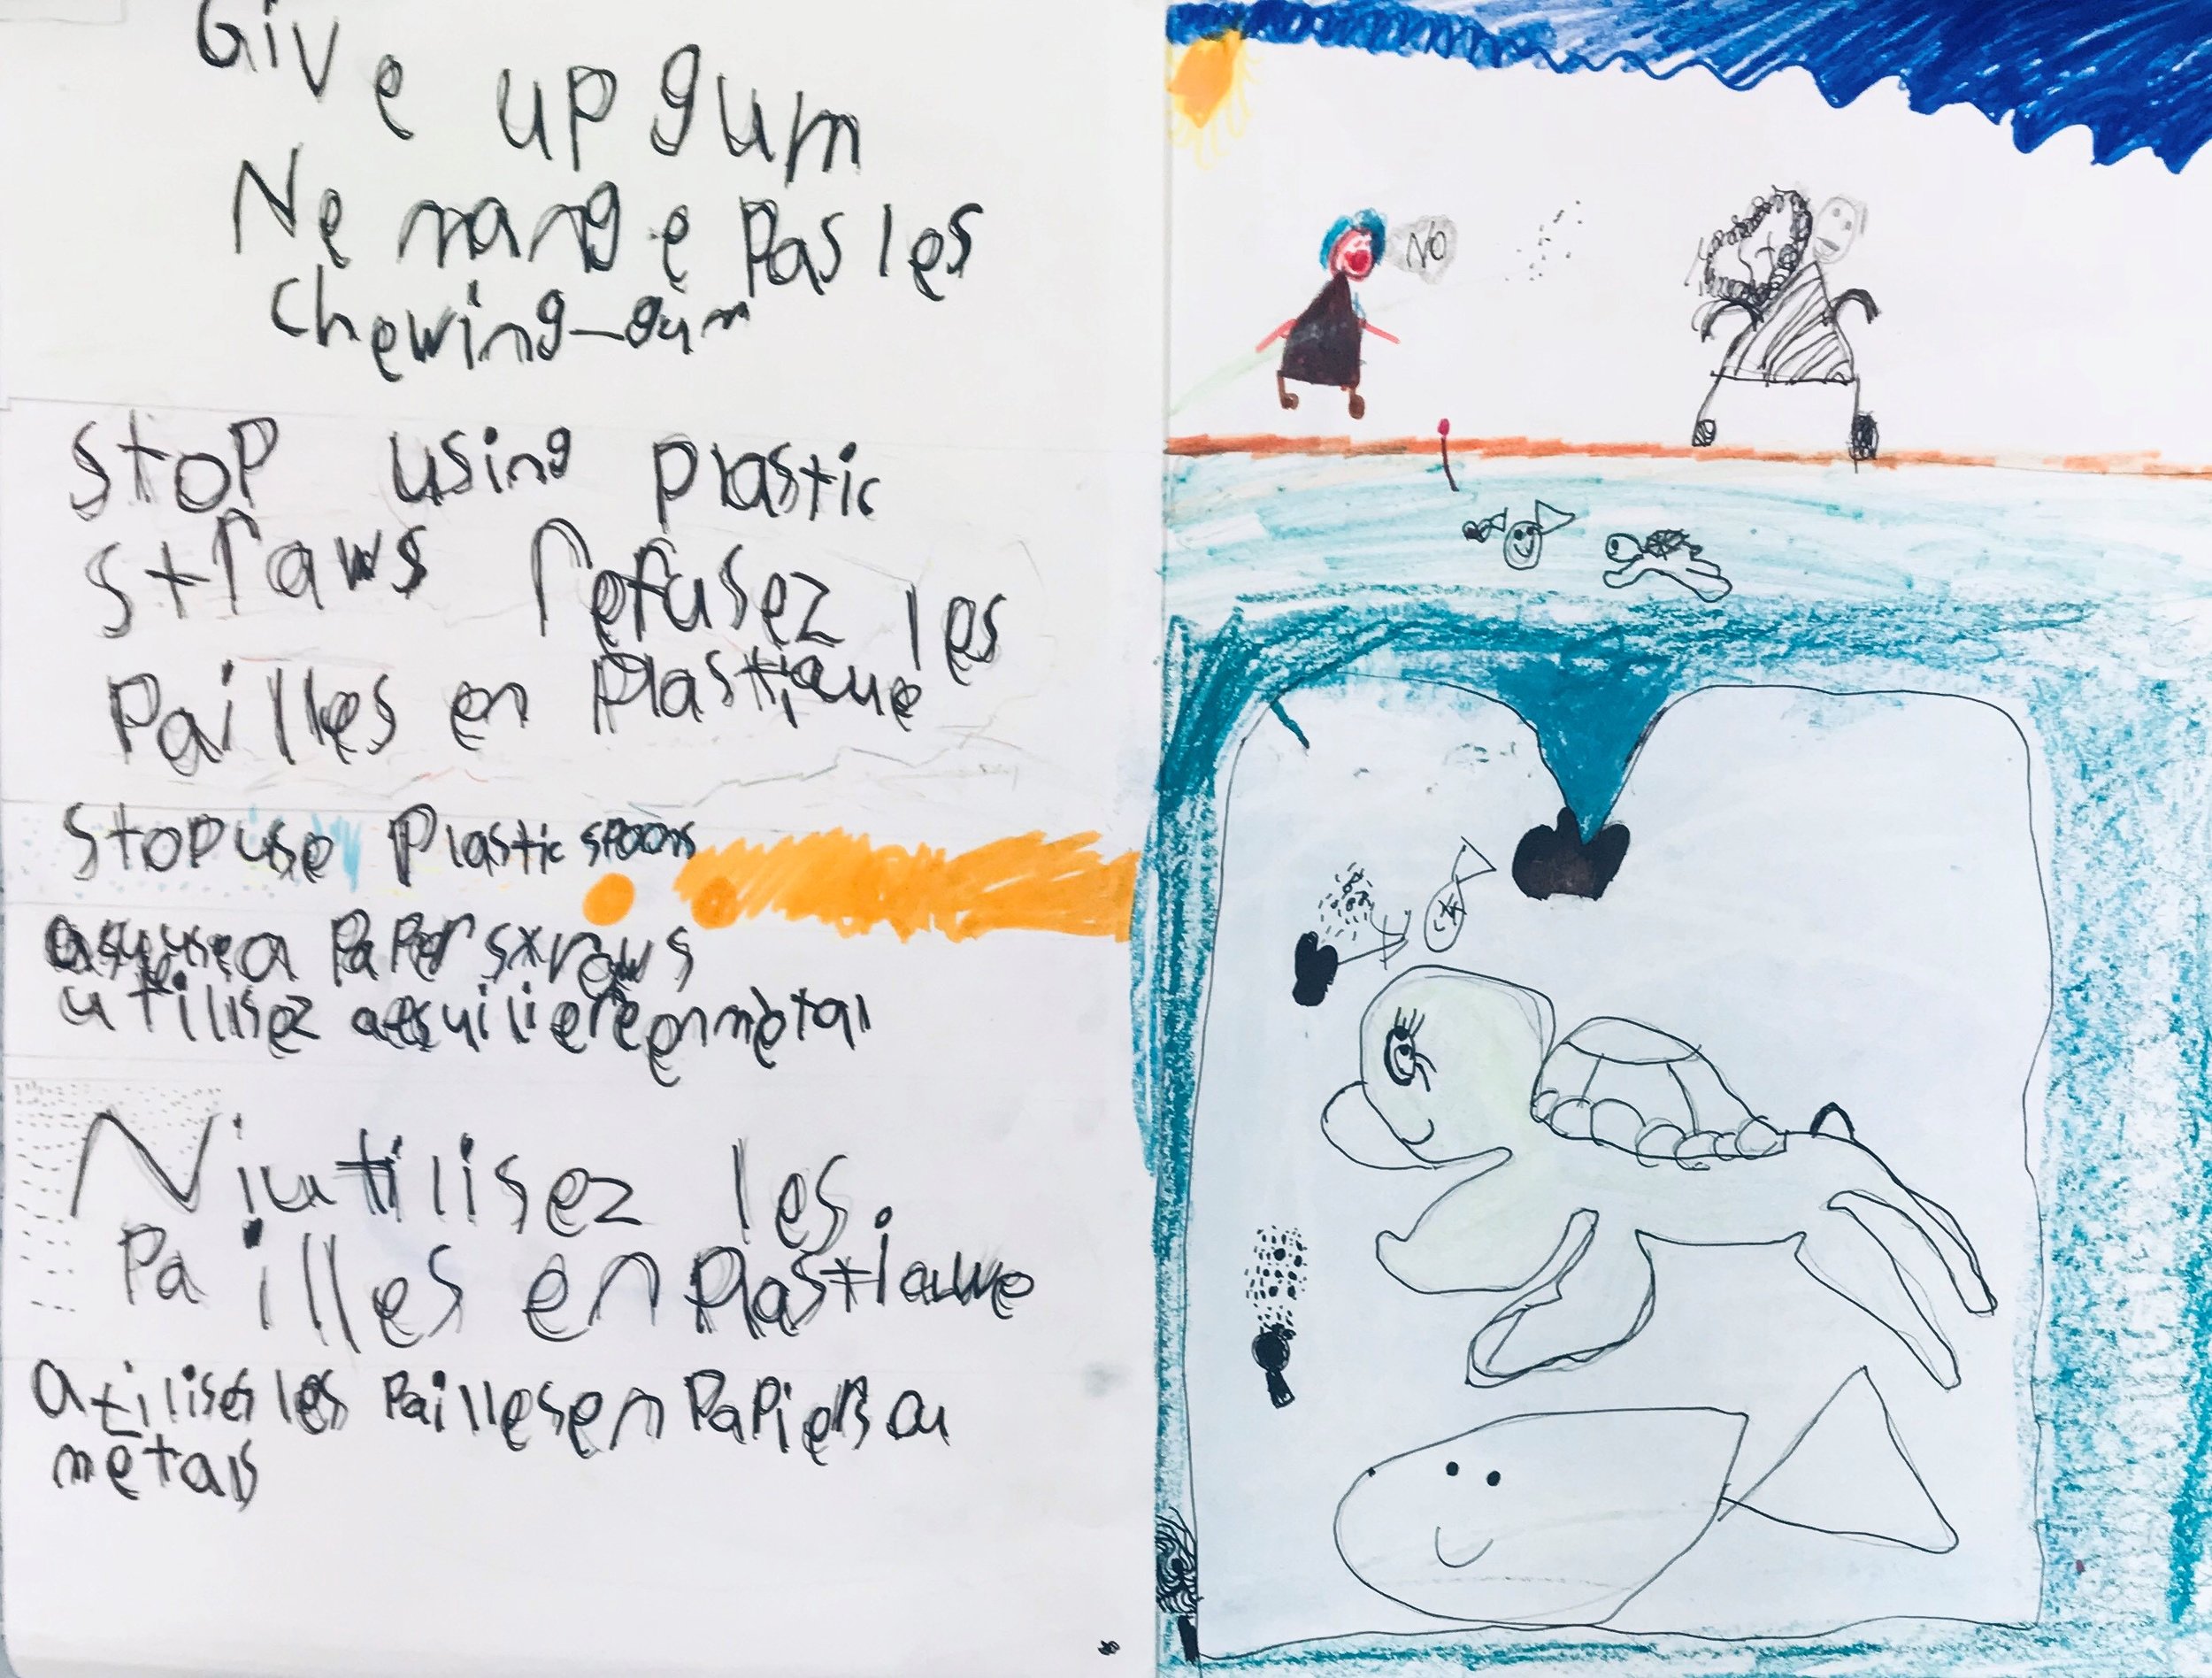 Give up gum
Ne mange pas les
chewing-gum
stop using plastic
straws refusez les
pailles en plastique
stop use plastic spoons
use a paper straws
utilisez cuiliere en mètal
Niutilisez les
pailles en plastique
utilises les pailles en papiers ou
mètals
NO